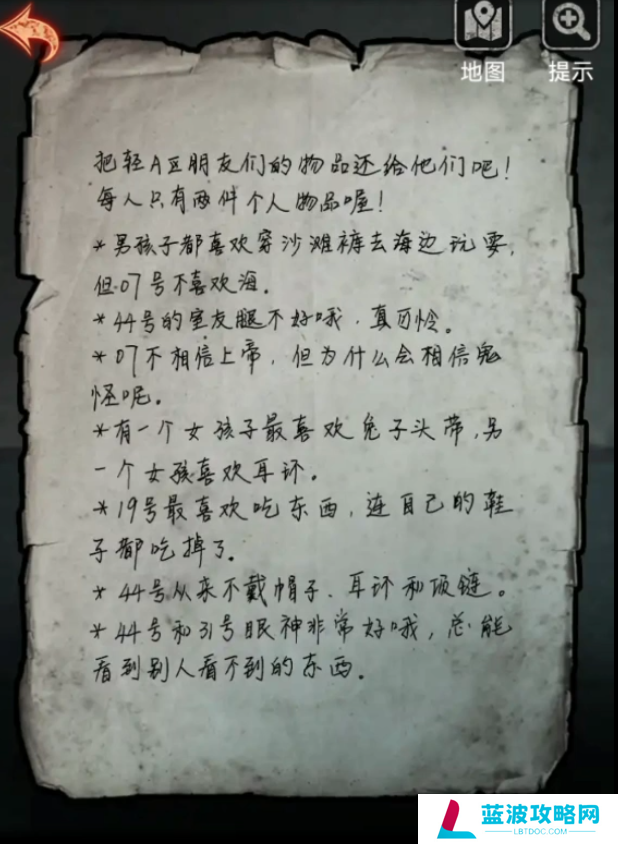 地图
提示
把轻A区朋友们的物品还给他们吧！
每人只有两件个人物品喔！
*男孩子都喜欢穿沙滩裤去海边玩耍，
但07号不喜欢海。
*44号的室友腿不好哦，真可怜。
*07不相信上帝，但为什么会相信鬼
怪呢。
*有一个女孩子最喜欢兔子头带，另
一个女孩喜欢耳环。
*19号最喜欢吃东西，连自己的鞋
子都吃掉了。
*44号从来不戴帽子、耳环和项链。
*44号和31号眼神非常好哦，总能
看到别人看不到的东西。
蓝波攻略网
LBTDOC.COM